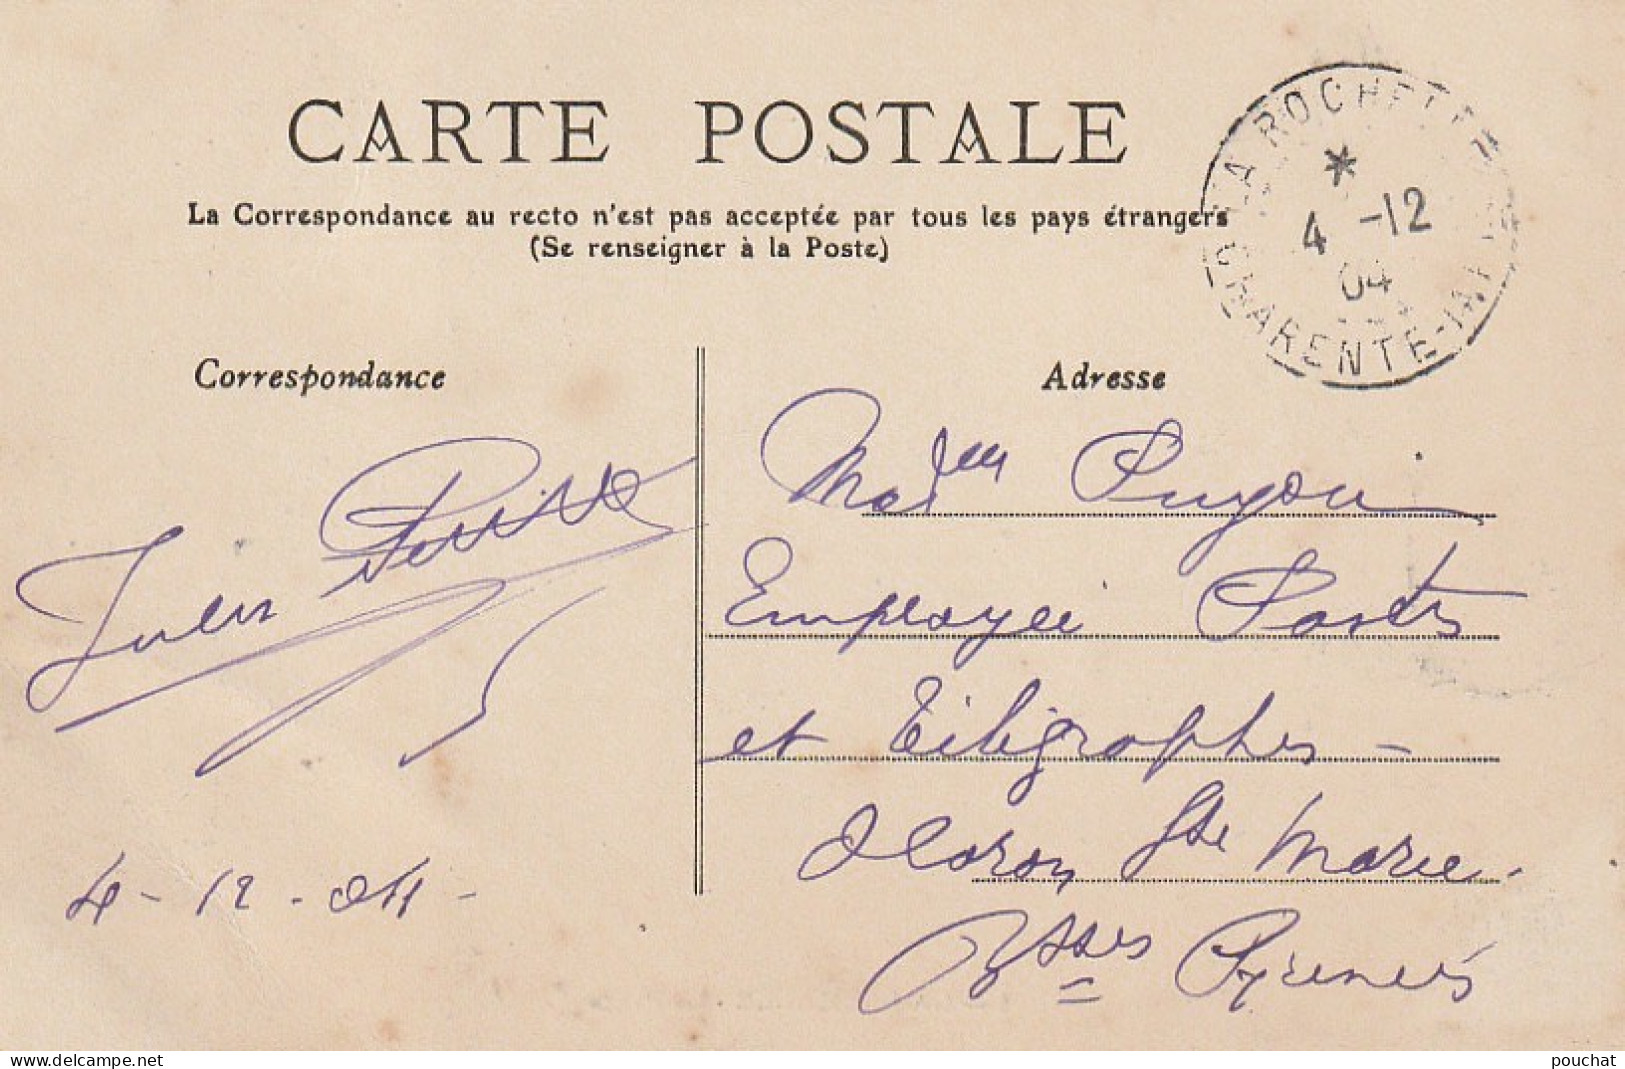 CARTE POSTALE
La Correspondance au recto n'est pas acceptée par tous les pays étrangers
(Se renseigner à la Poste)
LA ROCHELLE
4 -12
04
CHARENTE-INF
Correspondance
Adresse
Jules
4 - 12 - 04 -
Madme Puyou
Employée Postes
et Télégraphes -
Oloron Ste Marie.
Bsses Pyrénées
www.delcampe.net
pouchat